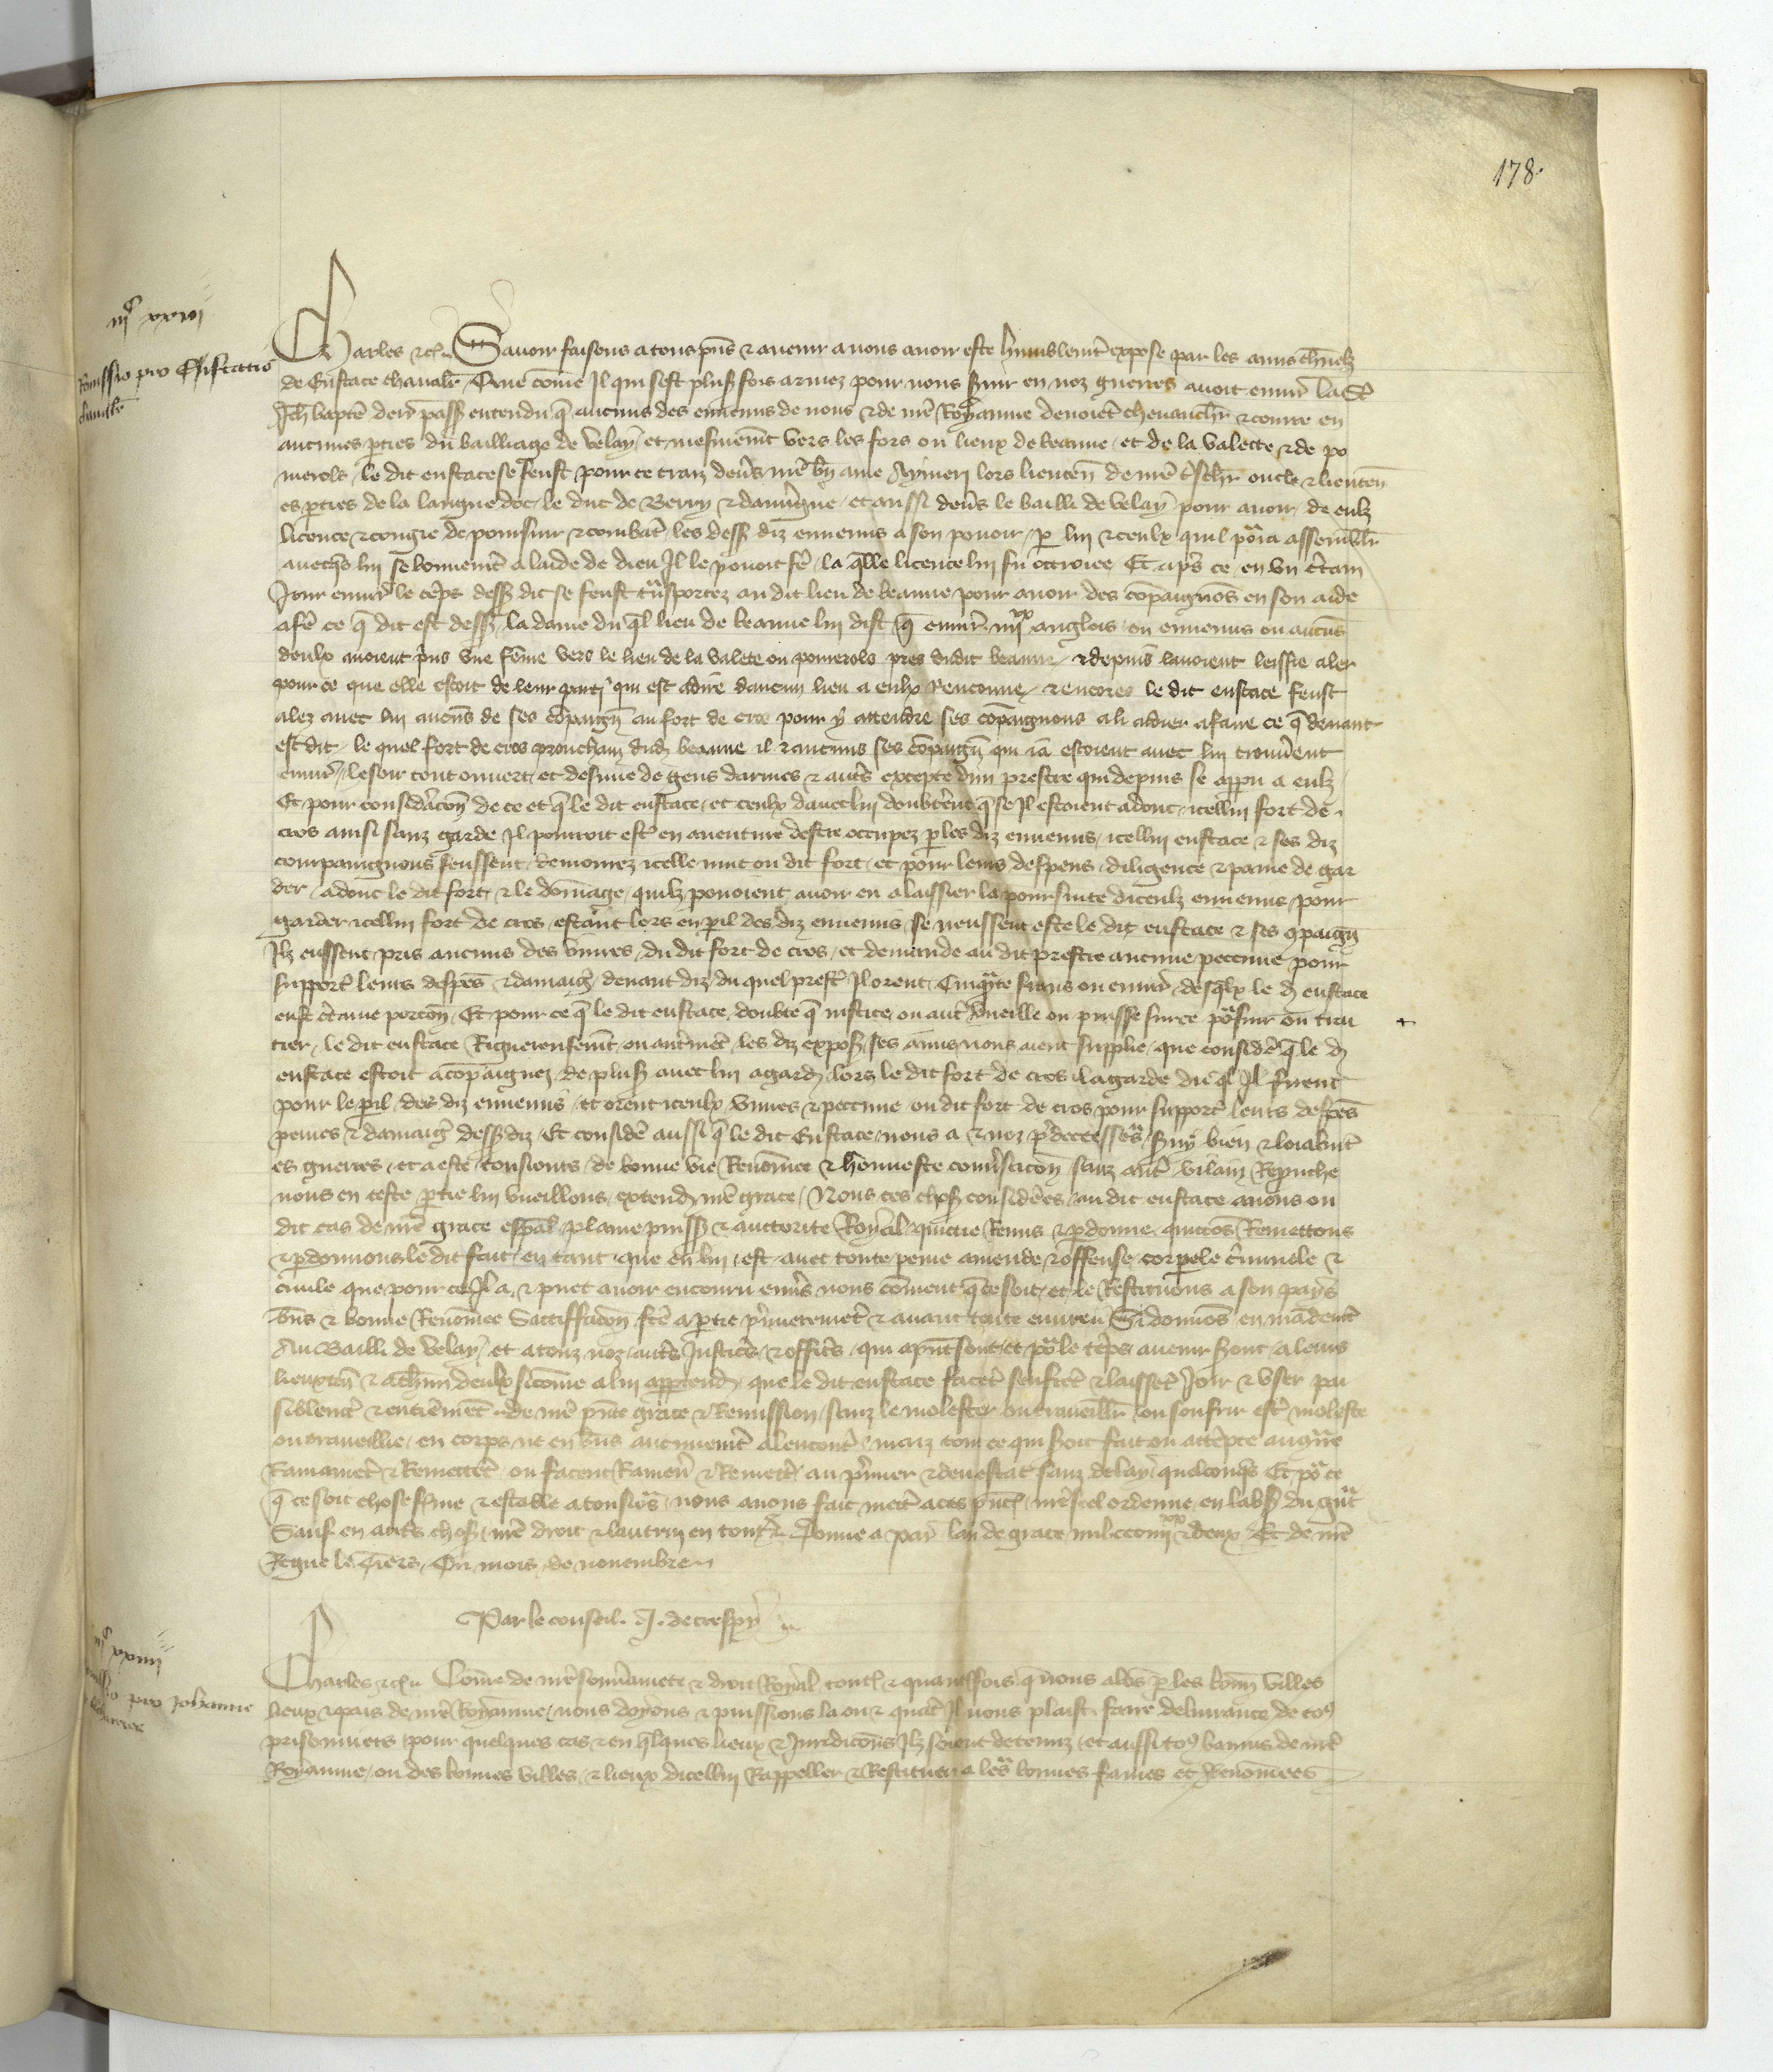 178.
iijc xxiij
Remissio pro Eustacio
Charles etc. Savoir faisons a tous pns et avenir a nous avoir este humblemt expose par les amis charnelz
de Eustace chavalr Que come Il qui sest plus fois armez pour nous servir en noz guerres avoit envir la st
Jeh baptē derr pass entendu q aucuns des ennemis de nous et de nrē Royaume devoiēt chevauchr et courre en
aucunes pties du bailliage de velay et mesmemt vers les fors ou lieux de beaune et de la valette et de po
merols le dit eustace se feust pour ce traiz devs nrē bn ame Aymeri lors lieuten de nrē tschr oncle et lieuten
es pties de la langue doc le duc de Berry et dauvgne et aussi devs le bailli de velay pour avoir de eulz
licence et congie de poursuir et combatr les dess diz ennemis a son povoir p lui et ceulx quil pora assemblr
avecques lui se bonnemt a laide de dieu Il le povoit fē la qlle licence lui fu ottroiee Et aps ce en un ctain
Jour envir le tēps dess dit se feust tnsportez au dit lieu de beaune pour avoir des cōpaignos en son aide
a fē ce q dit est dess la dame du ql lieu de beaune lui dist q envir iiijxx anglois ou ennemis ou aucūs
deulx avoient pris une fēme vers le lieu de la valete ou pomerols pres dudit beaune et depuis lavoient leissie aler
pour ce que elle estoit de leur parti qui est adire daucun lieu a eulx Renconne et encores le dit eustace feust
alez avec lui aucūs de ses cōpaign au fort de cros pour y attendre ses cōpaignons a li aidier a faire ce q devant
est dit le quel fort de cros prouchain dud beaune il et aucuns ses cōpaign qui ia estoient avec lui trouvent
envir le soir tout ouvert et desnue de gens darmes et auts excepte dun prestre qui depuis se apparu a eulz
Et pour considacon de ce et q le dit eustace et ceulx davec lui doubtent q se Il estoient adonc icellui fort de
cros ainsi sanz garde Il pourroit est en aventure destre occupez p les diz ennemis icellui eustace et ses diz
compaingnons feussent demourez icelle nuit ou dit fort et pour leurs despens diligence et paine de gar
der adonc le dit fort et le dommage quilz povoient avoir en a laissier la poursuite diceulz ennemis pour
garder icellui fort de cros estant lors en pil des diz ennemis se neussent este le dit eustace et ses cpaign
Ilz eussent pris aucuns des vivres du dit fort de cros et demande au dit prestre aucune peccune pour
support leurs despēs et damaig devant diz du quel prest Il orent Cinqte frans ou envir desqlx le d eustace
eust ctaine porcōn Et pour ce q le dit eustace doubte q iustice ou aut vueille ou puisse sur ce poursuir ou trai
tier le dit eustace Riguereusemt ou autmēt les diz expos ses amis nous aient supplie que considē q le d
eustace estoit acōpaignez de plus avec lui a gard lors le dit fort de cros
pour le pil des diz ennemis et orent iceulx vivres et peccune ou dit fort de cros pour support leurs despēs
peines et damaig dess diz Et considē aussi q le dit Eustace nous a et noz pdecesses suy bien et loialmt
es guerres et a este tousiours de bonne vie Renōmee et honneste convsacōn sanz aut vilain Repruche
nous en ceste ptie lui vueillons extend nrē grace Nous ces chos considēes au dit eustace avons ou
dit cas de nrē grace espāl plaine puiss et auctorite Royal quictie Remis et pdonne quictōs Remettons
et pdonnons le dit fait en tant que en lui est avec toute peine amende et offense corpele cminele et
civile que pour ce Il a et puet avoir encouru envs nous cōment q ce soit et le Restituons a son pays
bns et bonne Renōmee Sattiffacōn fcē a ptie pmieremēt et avant toute euvre Si donnōs en mādemt
Au Bailli de velay et a touz noz auts Justicrs et officrs qui apnt sont et po le tēps avenir seront a leurs
lieuxten et a chun deulx sicōme a lui appartend que le dit eustace facēt seuffrēt et laissēt Joir et user pai
siblemt et entiēmēt de nrē pnte grace et Remission sanz le molester ou traveillr ou soufrir est moleste
ou traveillie en corps ne en bns aucunemt alencont maiz tout ce qui soit fait ou attēpte au
Ramainēt et Remettēt ou facent Ramen et Remett au pmier et deu estat sanz delay quelconqs Et po ce
q ce soit chose ferme et estable a tousiors nous avons fait mett a ces pnt nrē scel ordenne en labs du gnt
Sauf en auts chos nrē droit et lautrui en tout Donne a par lan de grace mil ccc iiijxx et deux Et de nrē
Regne le Tiers On mois de novembre
Par le conseil. J. de crespy
iijc xxiiij
pro Johanne
Charles etc. Come de nrē souvainete et droit Royal toutes et quantesfois q nous alōs p les bonn villes
lieux et pais de nrē Royaume nous doyons et puissions la ou et quāt Il nous plaist faire delivrance de tos
prisonniers pour quelques cas et en qlques lieux et Jurediccōns Ilz soient detenuz et aussi tos bannis de nrē
Royaume ou des bonnes villes et lieux dicellui Rappeller et Restituer a leurs bonnes fames et Renōmees